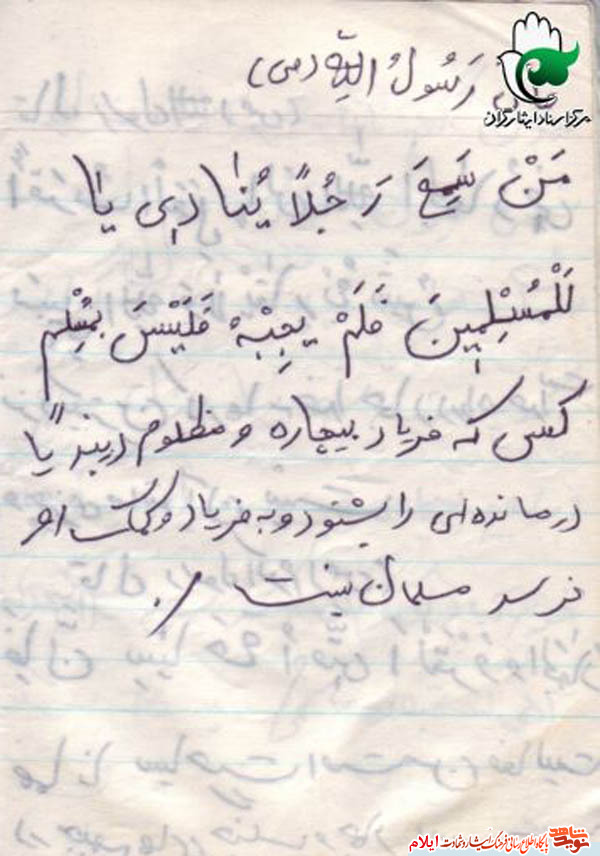 قال رَسُولُ اللهِ (ص)
مرکز اسناد ایثارگران
مَنْ سَمِعَ رَجُلاً یُنٰادِی یٰا
لَلْمُسْلِمِینَ فَلَمْ یُجِبْهُ فَلَیْسَ بِمُسْلِم
کسی که فریاد بیچاره و مظلوم دربند یا
درمانده‌ای را بشنود و به فریاد و کمک او
نرسد مسلمان نیست /.
نوید شاهد
پایگاه اطلاع رسانی فرهنگ ایثار و شهادت ایلام